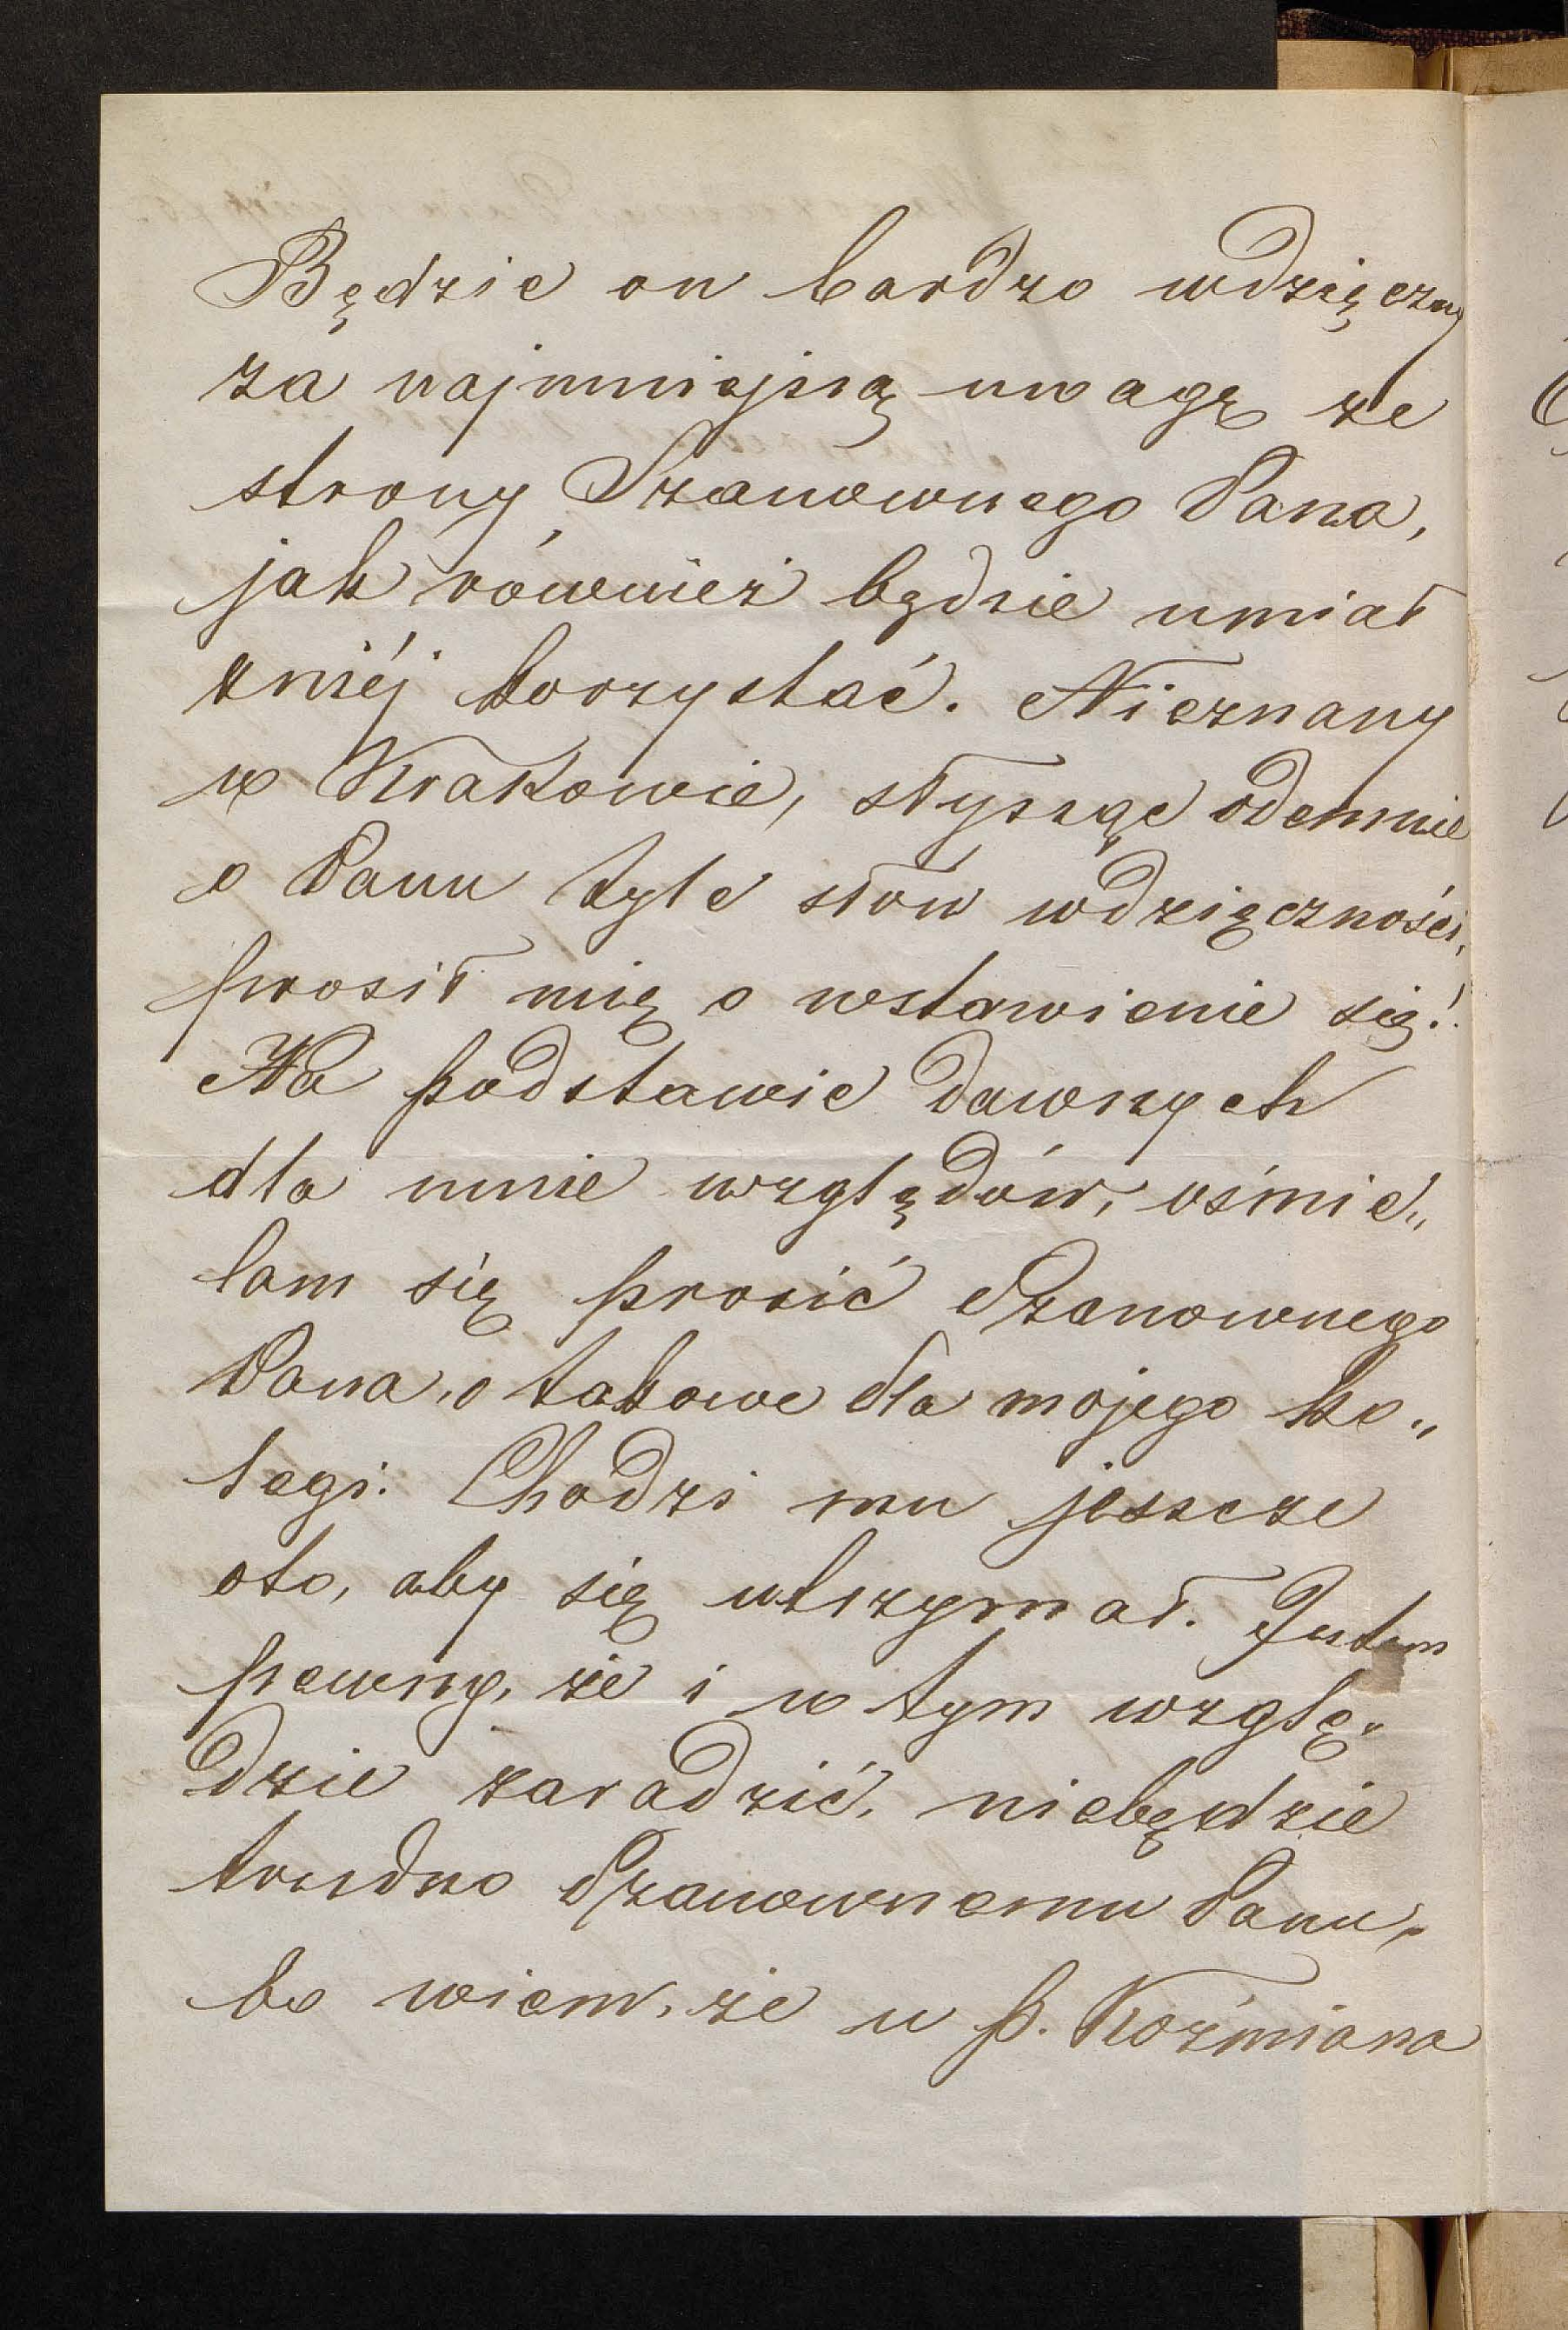 Będzie on bardzo wdzięczny
za najmniejszą uwagę ze
strony Szanownego Pana,
jak również będzie umiał
zniéj korzystać. Nieznany
w Krakowie, słysząc odemnie
o Panu tyle słów wdzięczności,
prosił mię o wstawienie się!
Na podstawie dawnych
dla mnie względów, ośmie„
lam się prosić Szanownego
Pana, o takowe dla mojego ko„
legi. Chodzi mu jeszcze
oto, aby się utrzymał. Jestem
pewny, że i w tym wzglę„
dzie zaradzić, niebędzie
trudno Szanownemu Panu,
bo wiem, że u p. Koźmiana